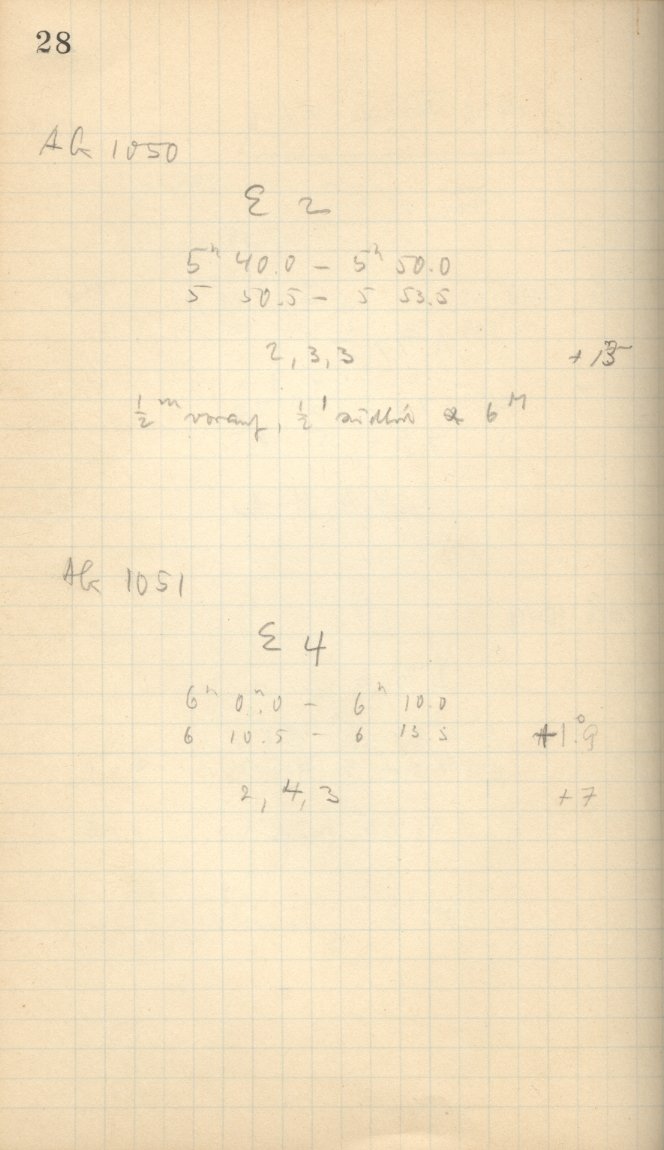 28
AG 1050
E 2
5ʰ 40.0 – 5ʰ 50.0
5 50.5 – 5 53.5
2, 3, 3 +15
½ᵐ vorauf, ½' südlich 6ᴹ
AG 1051
E 4
6ʰ 0ᵐ.0 – 6ʰ 10.0
6 10.5 – 6 13.5 +1°.9
2, 4, 3 +7